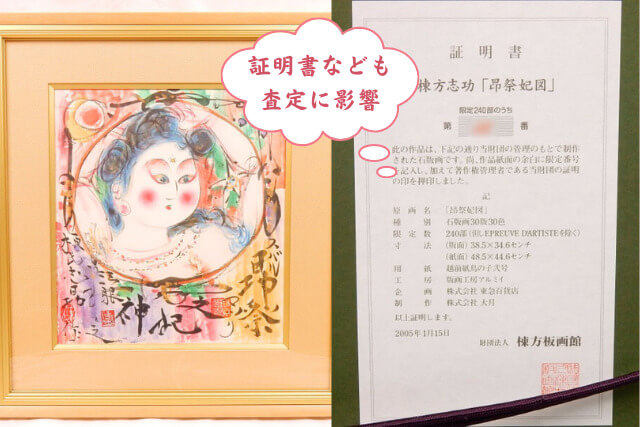 証明書なども
査定に影響
昴祭
妃
神
証明書
棟方志功「昴祭妃図」
限定240部のうち
第 番
此の作品は、下記の通り当財団の管理のもとで制作
された石版画です。尚、作品紙面の余白に限定番号
を記入し、加えて著作権管理者である当財団の証明
の印を押印しました。
記
原画名 「昴祭妃図」
種別 石版画30版30色
限定数 240部(但しEPREUVE D'ARTISTEを除く)
寸法 (版面) 38.5×34.6センチ
(紙面) 48.5×44.6センチ
用紙 越前紙鳥の子弐号
工房 版画工房アルミイ
企画 株式会社 東急百貨店
制作 株式会社 大月
以上証明します。
2005年1月15日
財団法人 棟方板画館